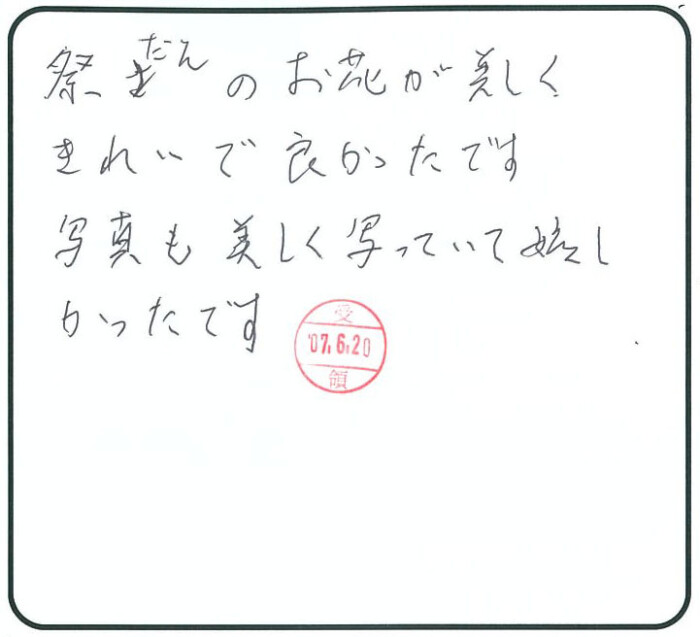 祭だんのお花が美しく
きれいで良かったです
写真も美しく写っていて嬉し
かったです
受
'07.6.20
領